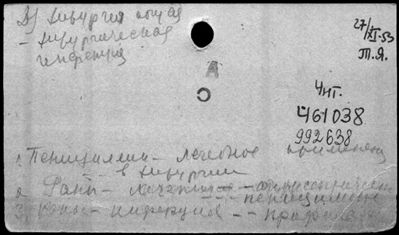 А) Хирургия общая
– хирургическая
инфекция
27/XI-53
Т.Я.
А
С
Чит.
461038
992638
1. Пенициллин – лечебное применен
– в хирургии
2. Раны – лечение –
пенициллином
3. Раны – инфекция – – профилак